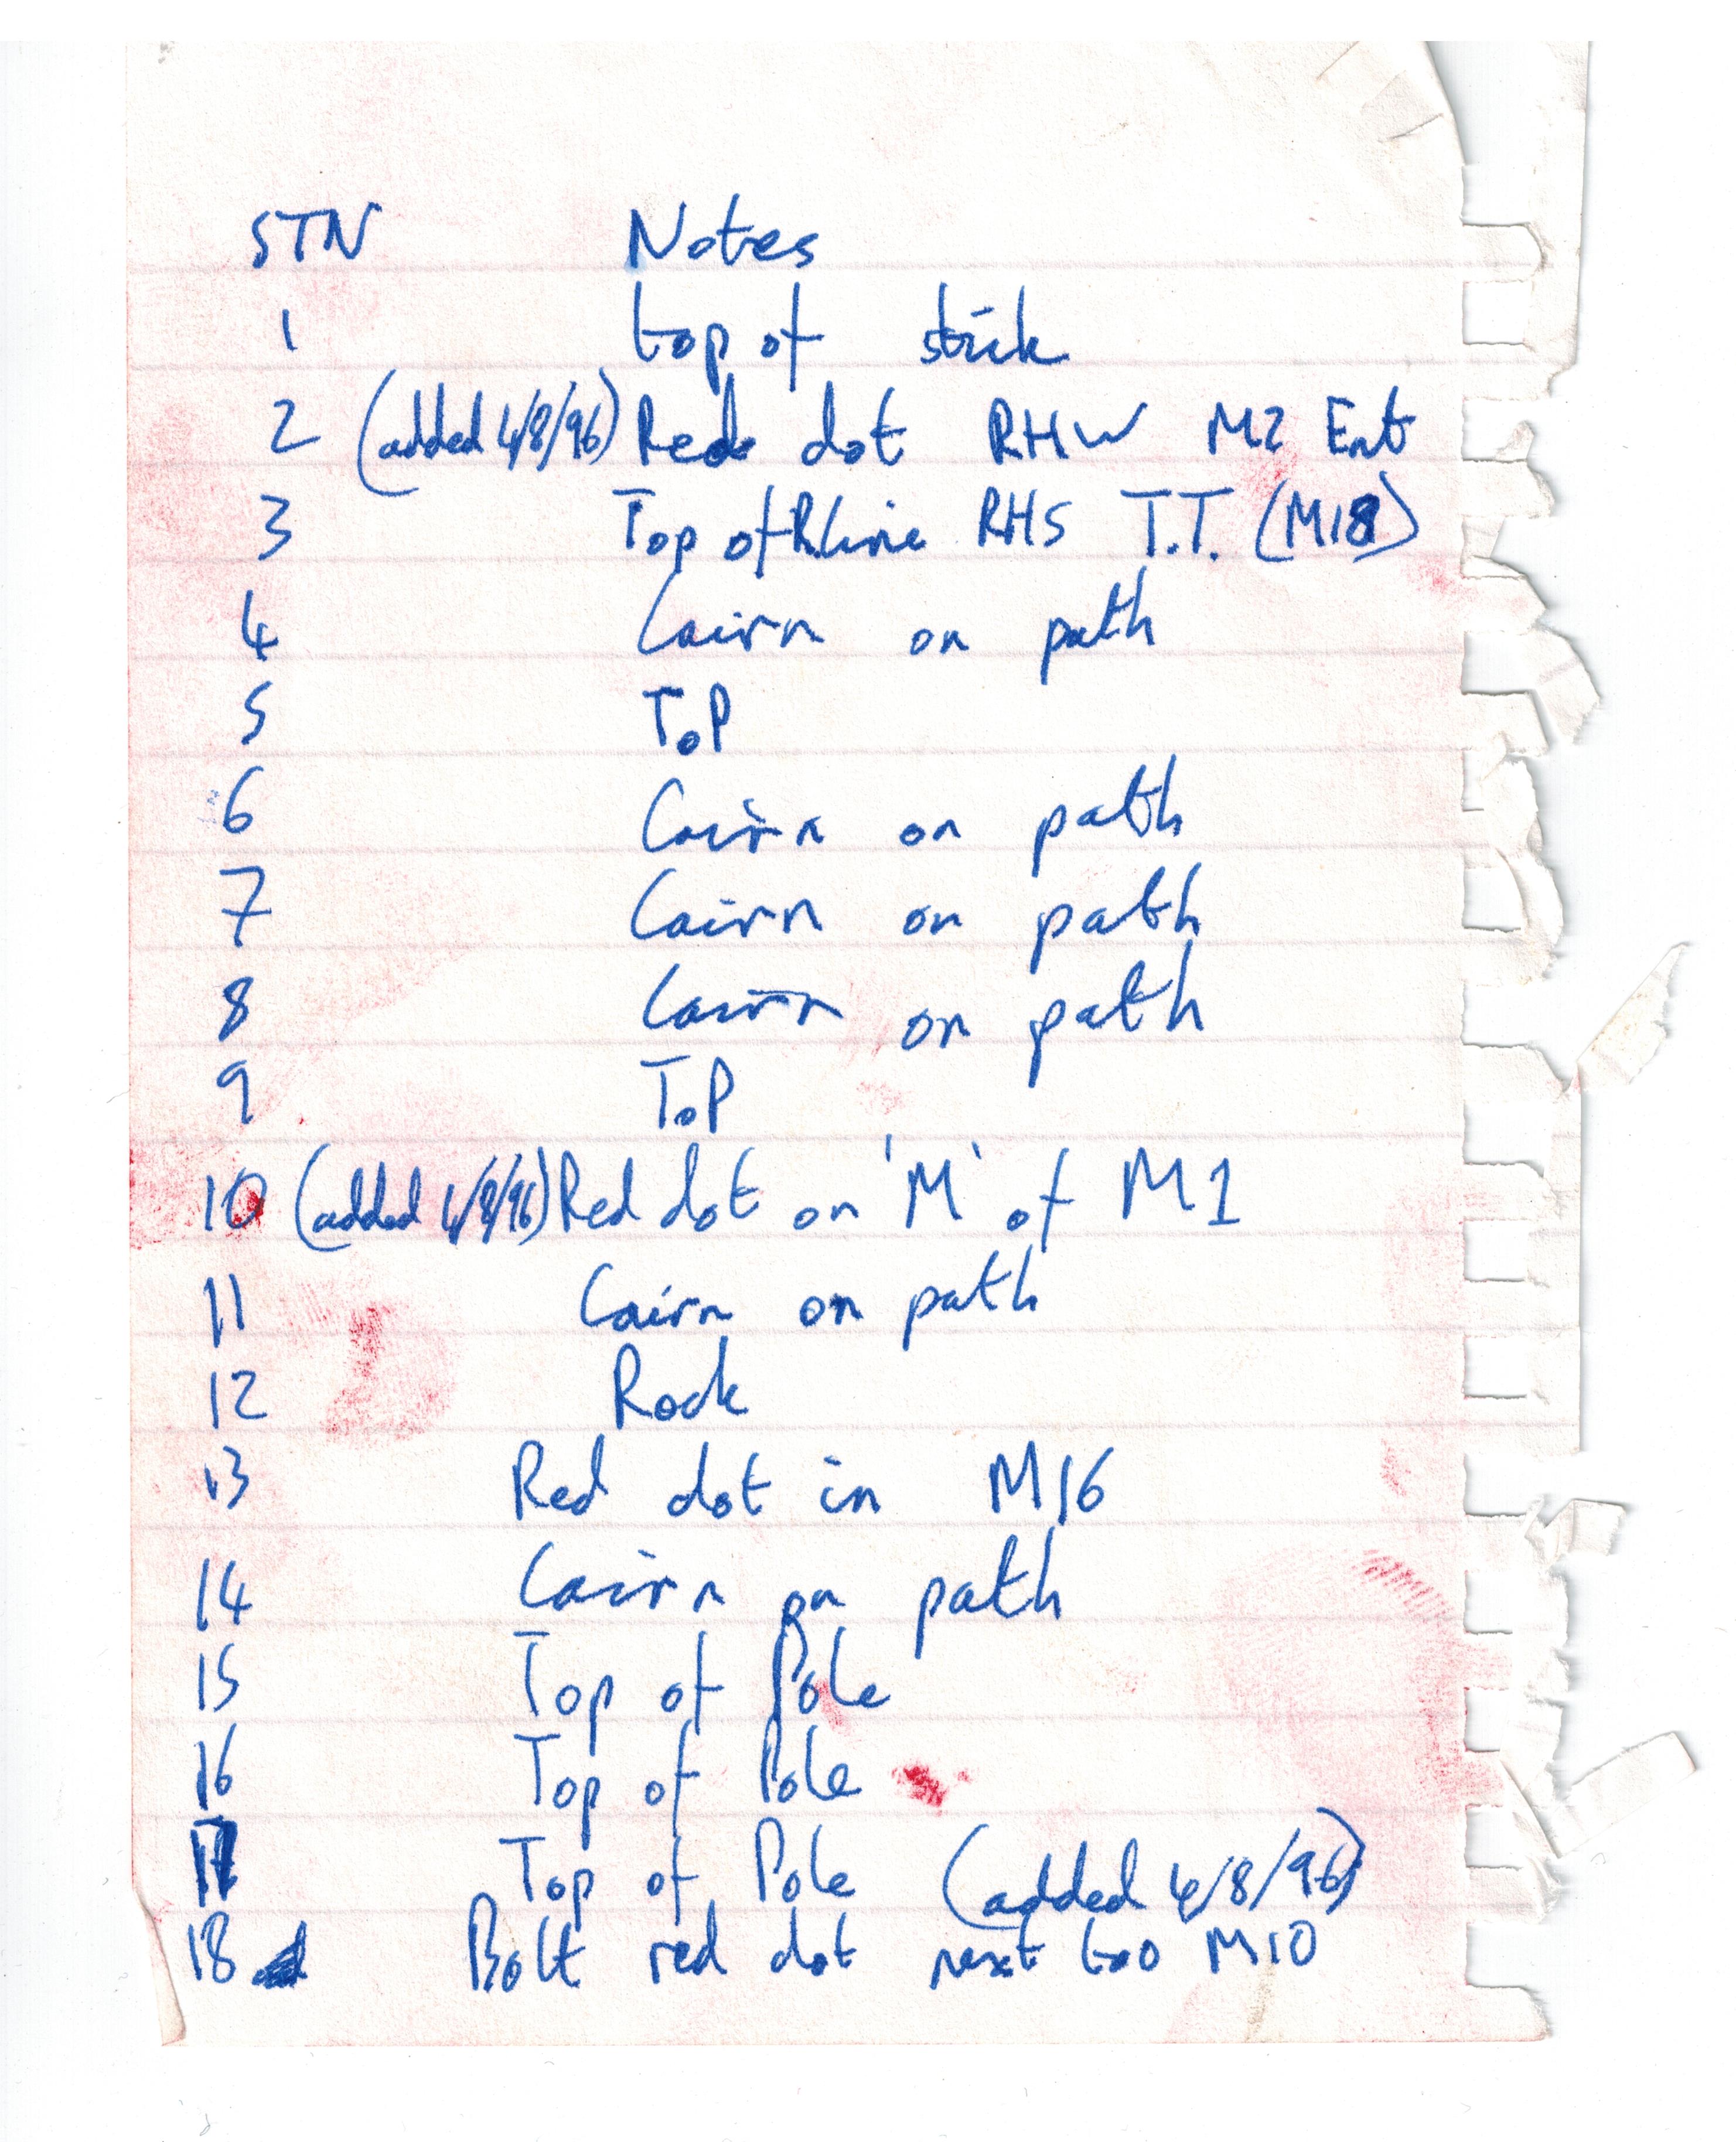 STN Notes
1 top of stick
2 (added 4/8/96) Red dot RHW M2 Ent
3 Top of RHS T.T. (M18)
4 Cairn on path
5 ToP
6 Cairn on path
7 Cairn on path
8 Cairn on path
9 ToP
10 (added 4/8/96) Red dot on 'M' of M1
11 Cairn on path
12 Rock
13 Red dot in M16
14 Cairn on path
15 Top of Pole
16 Top of Pole
17 Top of Pole (added 4/8/96)
18 Bolt red dot next too M10